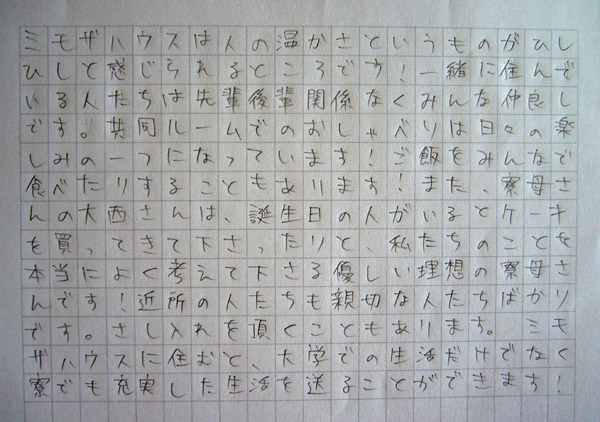 ミモザハウスは人の温かさというものがひし
ひしと感じられるところです！一緒に住んで
いる人たちは先輩後輩関係なくみんな仲良し
です。共同ルームでのおしゃべりは日々の楽
しみの一つになっています！ご飯をみんなで
食べたりすることもあります！また、寮母さ
んの大西さんは、誕生日の人がいるとケーキ
を買ってきて下さったりと、私たちのことを
本当によく考えて下さる優しい理想の寮母さ
んです！近所の人たちも親切な人たちばかり
です。さし入れを頂くこともあります。ミモ
ザハウスに住むと、大学での生活だけでなく
寮でも充実した生活を送ることができます！